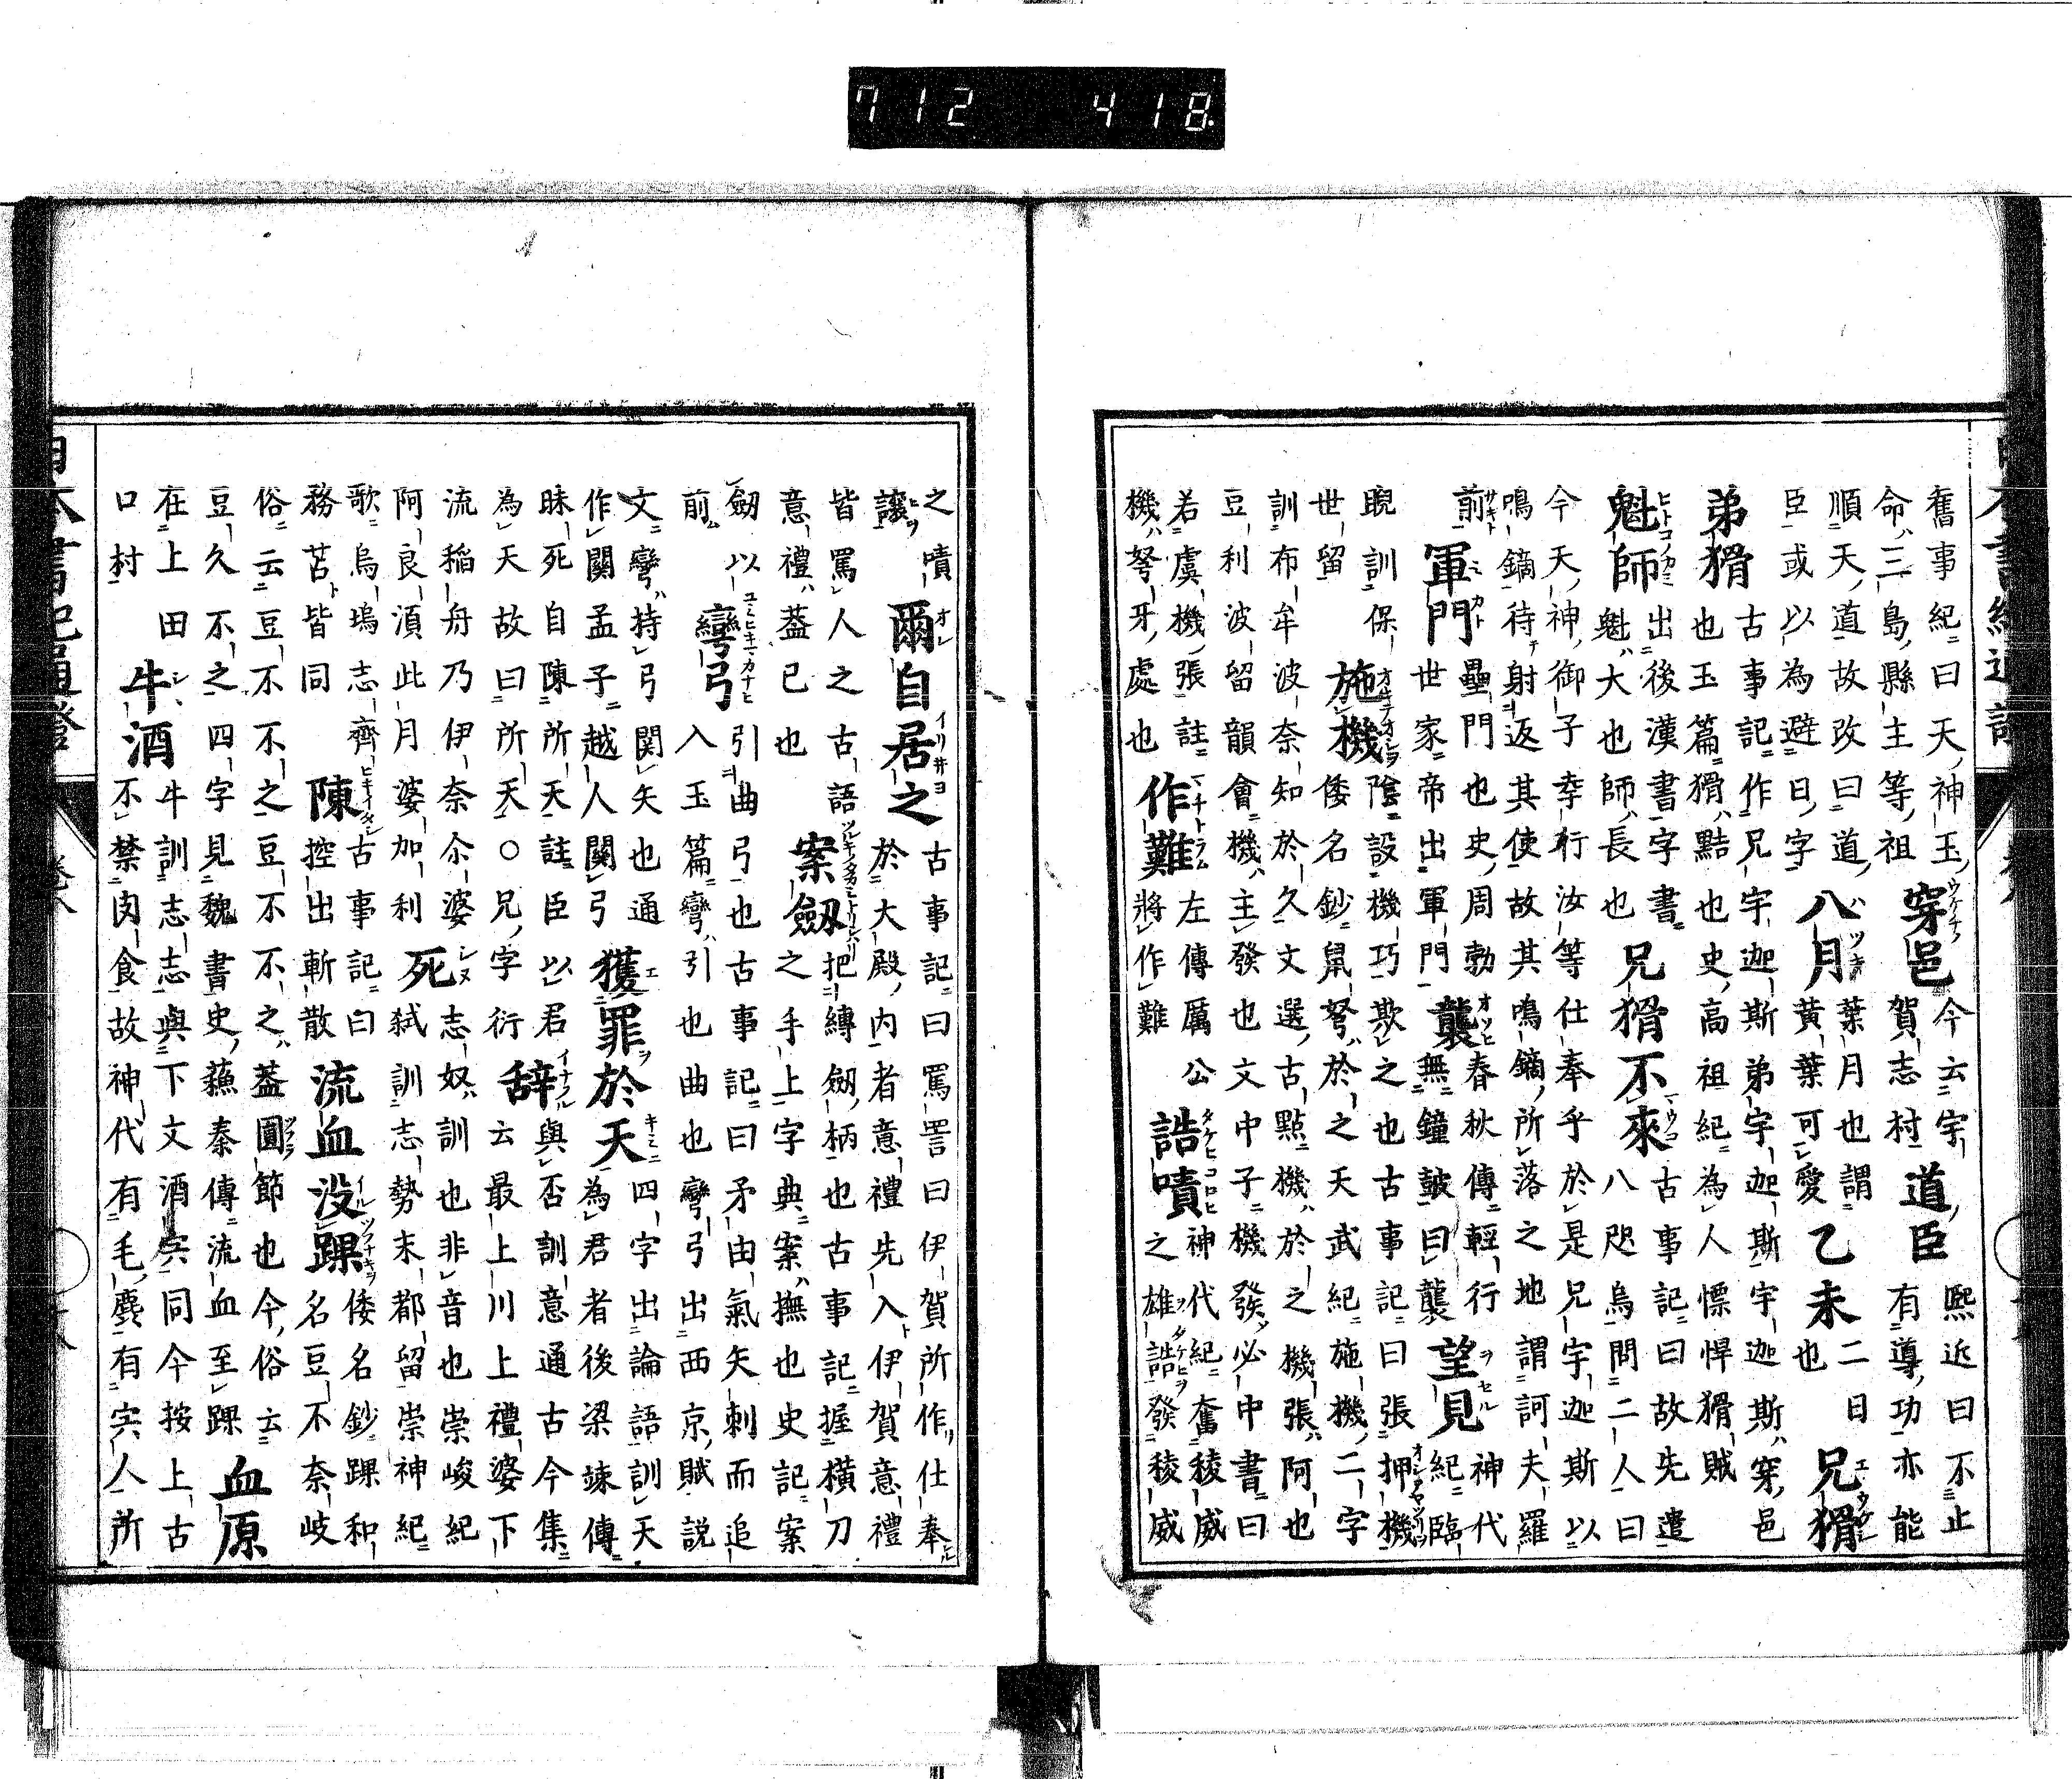 712 418
舊事紀曰天神玉
命三島縣主等祖
穿邑
今云宇
賀志村
道臣
熙近曰不止
有導功亦能
順天道故改曰道
臣或以為避日字
八月
葉月也謂
黄葉可愛
乙未
二日
也
兄猾
弟猾
古事記作兄宇迦斯弟宇迦斯宇迦斯穿邑
也玉篇猾黠也史高祖紀為人慓悍猾賊
魁師
出後漢書字書
魁大也師長也
兄猾不來
古事記曰故先遣
八咫烏問二人曰
今天神御子幸行汝等仕奉乎於是兄宇迦斯以
鳴鏑待射返其使故其鳴鏑所落之地謂訶夫羅
前
軍門
壘門也史周勃
世家帝出軍門
襲
春秋傳輕行
無鐘鼓曰襲
望見
神代
紀臨
睨訓
保
施機
陰設機巧欺之也古事記曰張押機
倭名鈔鼠弩於之天武紀施機二字
世留
訓布牟波奈知於久文選古點機於之機張阿也
豆利波留韻會機主發也文中子機發必中書曰
若虞機張註
機弩牙處也
作難
左傳厲公
將作難
誥嘖
神代紀奮稜威
之雄誥發稜威
之嘖
讓
爾自居之
古事記曰罵詈曰伊賀所作仕奉
於大殿内者意禮先入伊賀意禮
皆罵人之古語
意禮蓋已也
案劔
把縛劔柄也古事記握横刀
之手上字典案撫也史記案
劔以
前
彎弓
引曲弓也古事記曰矛由氣矢刺而追
入玉篇彎引也曲也彎弓出西京賦説
文彎持弓関矢也通
作関孟子越人関弓
獲罪於天
四字出論語訓天
為君者後梁竦傳
昧死自陳所天註臣以君
為天故曰所天○兄字行
辞
與否訓意通古今集
云最上川上禮婆下
流稲舟乃伊奈尒婆志奴訓也非音也崇峻紀
阿良須此月婆加利
死
弑訓志勢末都留崇神紀
歌烏塢志齊
務苦皆同
陳
古事記曰
控出斬散
流血没踝
倭名鈔踝和
名豆不奈岐
俗云豆不不之豆不不之蓋圓節也今俗云
豆久不之四字見魏書史蘓秦傳流血至踝
血原
在上田
口村
牛酒
牛訓志志與下文酒宍同今按上古
不禁肉食故神代有毛麁有宍人所